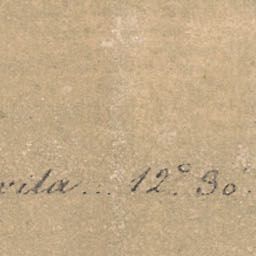 vila... 12° 30'